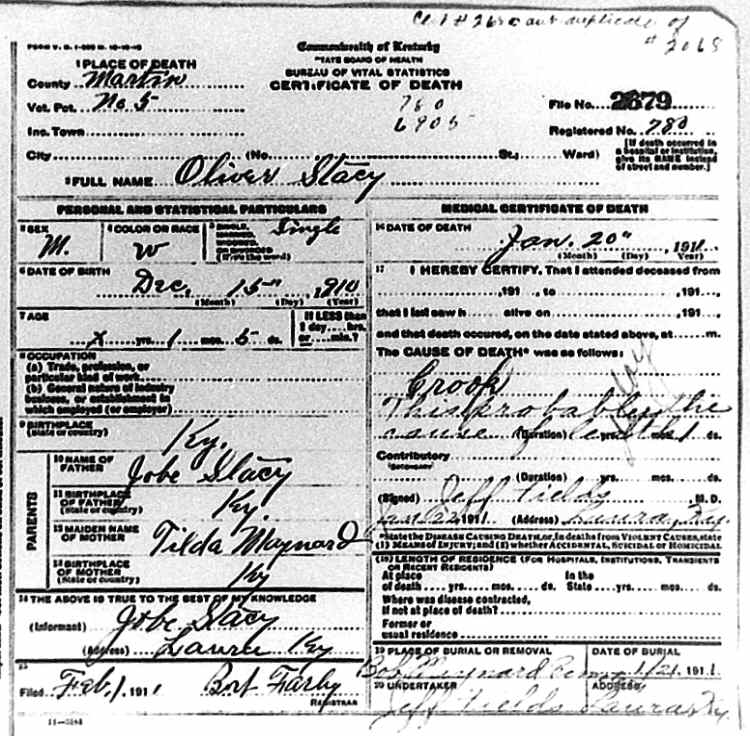 duplicate of
# 2068
FORM V. S. 1-
Commonwealth of Kentucky
STATE BOARD OF HEALTH
BUREAU OF VITAL STATISTICS
CERTIFICATE OF DEATH
1 PLACE OF DEATH
County Martin
Vot. Pct. No. 5
Inc. Town
780
6905
File No. 2879
Registered No. 780
City (No. St.; Ward)
[If death occurred in a hospital or institution, give its NAME instead of street and number.]
2 FULL NAME Oliver Stacy
PERSONAL AND STATISTICAL PARTICULARS
3 SEX M.
4 COLOR OR RACE W
5 SINGLE, MARRIED, WIDOWED, OR DIVORCED (Write the word) Single
6 DATE OF BIRTH
Dec, 15th, 1910
(Month) (Day) (Year)
7 AGE
x yrs. 1 mos. 5 ds.
If LESS than 1 day....hrs. or....min.?
8 OCCUPATION
(a) Trade, profession, or
particular kind of work
(b) General nature of industry
business, or establishment in
which employed (or employer)
9 BIRTHPLACE
(State or country) Ky.
PARENTS
10 NAME OF
FATHER Jobe Stacy
11 BIRTHPLACE
OF FATHER
(State or country) Ky.
12 MAIDEN NAME
OF MOTHER Tilda Maynard
13 BIRTHPLACE
OF MOTHER
(State or country) Ky
14 THE ABOVE IS TRUE TO THE BEST OF MY KNOWLEDGE
(Informant) Jobe Stacy
(Address) Laura Ky
15
Filed Feb, 1 1911 Bort
REGISTRAR
11-
MEDICAL CERTIFICATE OF DEATH
16 DATE OF DEATH
Jan. 20th, 1911.
(Month) (Day) (Year)
17 I HEREBY CERTIFY, That I attended deceased from
,191 , to ,191 ,
that I last saw h alive on ,191 ,
and that death occured, on the date stated above, at m.
The CAUSE OF DEATH* was as follows:
Croop
This probably the
cause of death
(Duration) yrs. mos. ds.
Contributory
(SECONDARY)
(Duration) yrs. mos. ds.
(Signed) Jeff Fields M. D.
Jan 22 1911 (Address) Laura, Ky.
*State the DISEASE CAUSING DEATH, or, in deaths from VIOLENT CAUSES, state
(1) MEANS OF INJURY; and (2) whether ACCIDENTAL, SUICIDAL or HOMICIDAL.
(18) LENGTH OF RESIDENCE (FOR HOSPITALS, INSTITUTIONS, TRANSIENTS
OR RECENT RESIDENTS)
At place In the
of death yrs. mos. ds. State yrs. mos. ds.
Where was disease contracted,
if not at place of death?
Former or
usual residence
19 PLACE OF BURIAL OR REMOVAL
DATE OF BURIAL
Bob Maynard 1/21 1911
20 UNDERTAKER
ADDRESS
Jeff Fields Laura Ky.